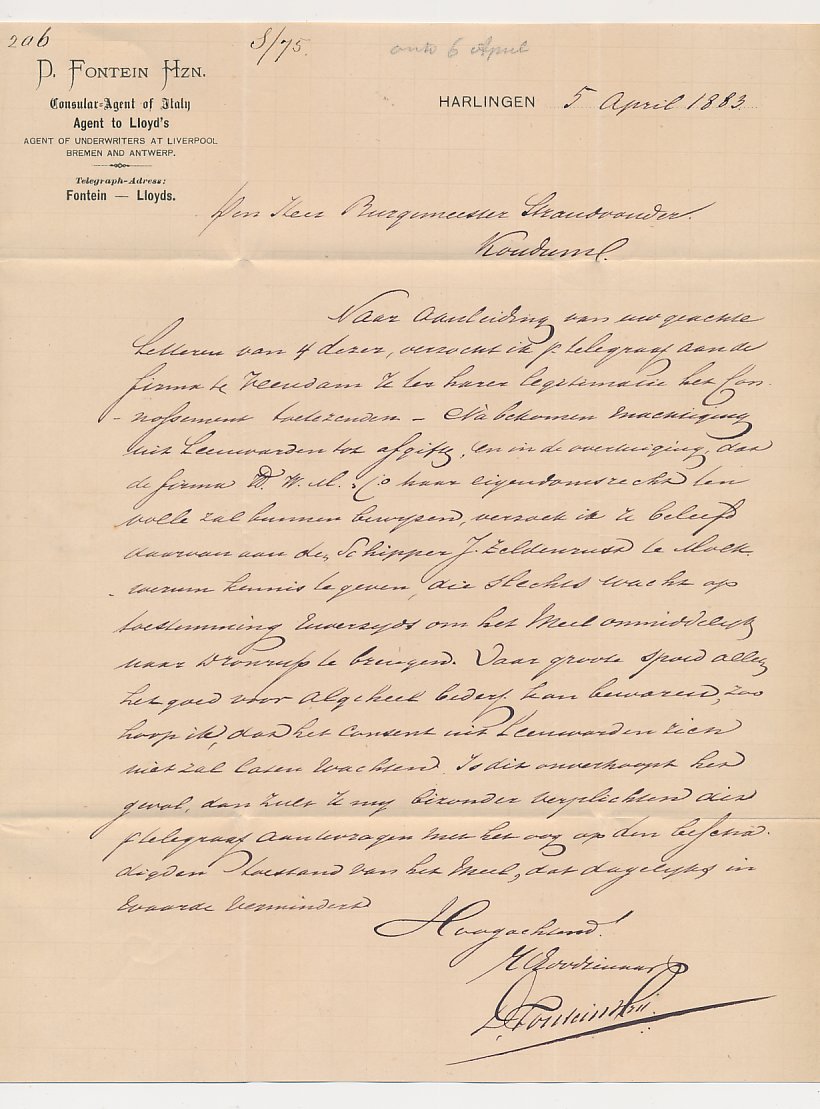 206
S/75.
ontv 6 April
D. FONTEIN HZN.
Consular-Agent of Italy
Agent to Lloyd's
AGENT OF UNDERWRITERS AT LIVERPOOL
BREMEN AND ANTWERP.
Telegraph-Adress:
Fontein — Lloyds.
HARLINGEN 5 April 1883
Den Heer Burgemeester Strandvonder.
Koudum
Naar aanleiding van uw geachte
letteren van 4 dezer, verzocht ik p. telegraaf aan de
firma te Veendam U ter harer legitimatie het Con-
-nossement toetezenden – Na bekomen machtiging
uit Leeuwarden tot afgifte, en in de overtuiging, dat
de firma W. M. & Co haar eigendomsrecht ten
volle zal kunnen bewyzen, verzoek ik U beleefd
daarvan aan den Schipper J. Zeldenrust te Molk-
-werum kennis te geven, die slechts wacht op
toestemming Uwerzyds om het Meel onmiddelyk
naar Dronryp te brengen. Daar groote spoed alleen
het goed voor algeheel bederf kan bewaren, zoo
hoop ik, dat het consent uit Leeuwarden zich
niet zal laten wachten. Is dit onverhoopt het
geval, dan zult U my bizonder verplichten dit
p telegraaf aantevragen met het oog op den bescha-
digden toestand van het Meel, dat dagelyks in
waarde vermindert
Hoogachtend!
UEd
D. Fontein Hzn.